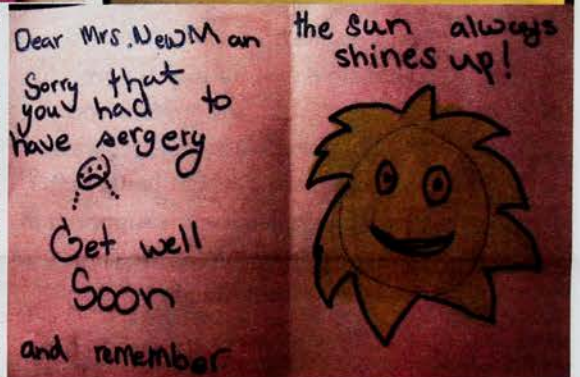 Dear Mrs. NewMan
Sorry that
you had to
have sergery
Get well
Soon
and remember
the sun always
shines up!